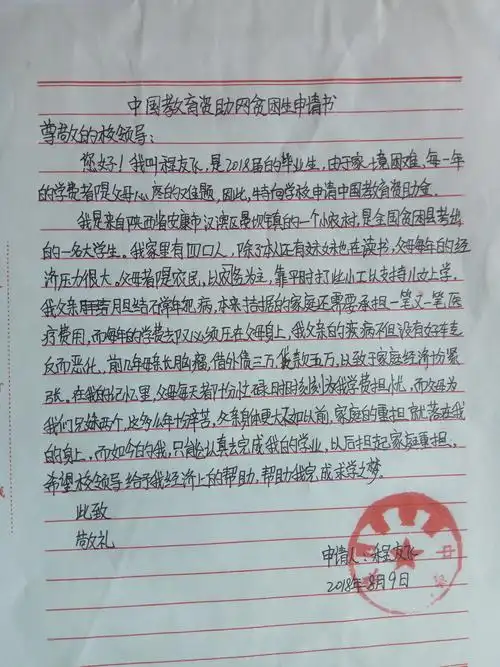 中国教育资助网贫困生申请书
尊敬的校领导:
您好!我叫程友飞,是2018届的毕业生,由于家境困难,每一年
的学费都是父母心座的难题,因此,特向学校申请中国教育资助金。
我是来自陕西省安康市汉滨区晏坝镇的一个小农村,是全国贫困县考出
的一名大学生。我家里有四口人,除了本人还有妹妹也在读书,父母每年的经
济压力很大。父母都是农民,以农务为主,靠平时打些小工以支持儿女上学,
我父亲胆结石常年犯病,本来拮据的家庭还需要承担一笔又一笔医
疗费用,而每年的学费却又必须压在父母身上,我父亲的疾病不但没有好转
反而恶化,前几年母亲长胸瘤,借外债三万,贷款五万,以致于家庭经济十分紧
张。在我的记忆里,父母每天都十分忙碌时时刻刻为我学费担忧,而父母为
我们兄妹两个,这多么年十分辛苦,父亲身体更大不如以前,家庭的重担就落在我
的身上,而如今的我,只能认真去完成我的学业,以后担起家庭重担。
希望校领导给予我经济上的帮助,帮助我完成求学之梦。
此致
敬礼
申请人:程友飞
2018年8月9日